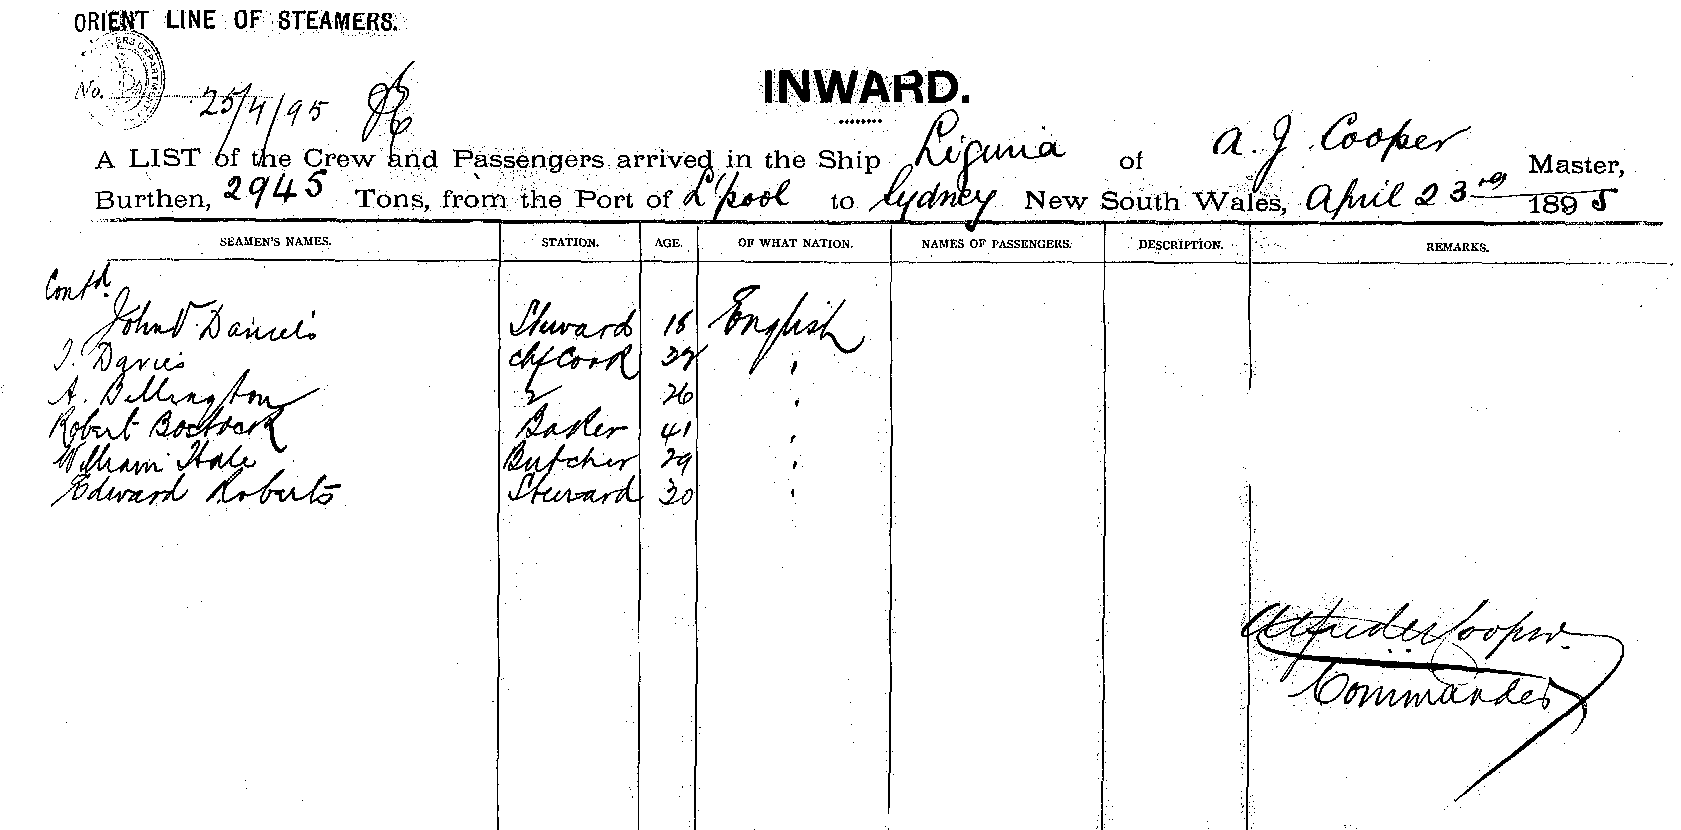 ORIENT LINE OF STEAMERS.
No.
25/4/95
INWARD.
A LIST of the Crew and Passengers arrived in the Ship Liguria of A. J. Cooper Master,
Burthen, 2945 Tons, from the Port of L'pool to Sydney New South Wales, April 23rd 1895
SEAMEN'S NAMES. STATION. AGE. OF WHAT NATION. NAMES OF PASSENGERS. DESCRIPTION. REMARKS.
Contd.
John Daniels Steward 18 English
J. Davies chf Cook 32 "
A. Billington 2 26 "
Robert Bostock Baker 41 "
William Hale Butcher 29 "
Edward Roberts Steward 30 "
Alfred Cooper
Commander